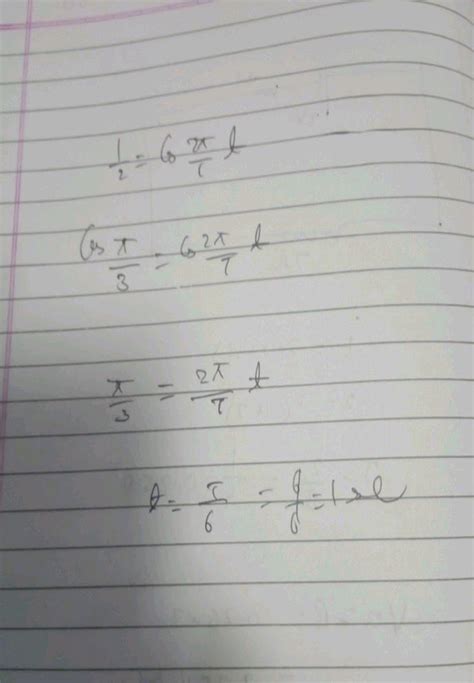 1/2 = Cos 2π/T t
Cos π/3 = Cos 2π/T t
π/3 = 2π/T t
t = T/6 = 6/6 = 1 sec